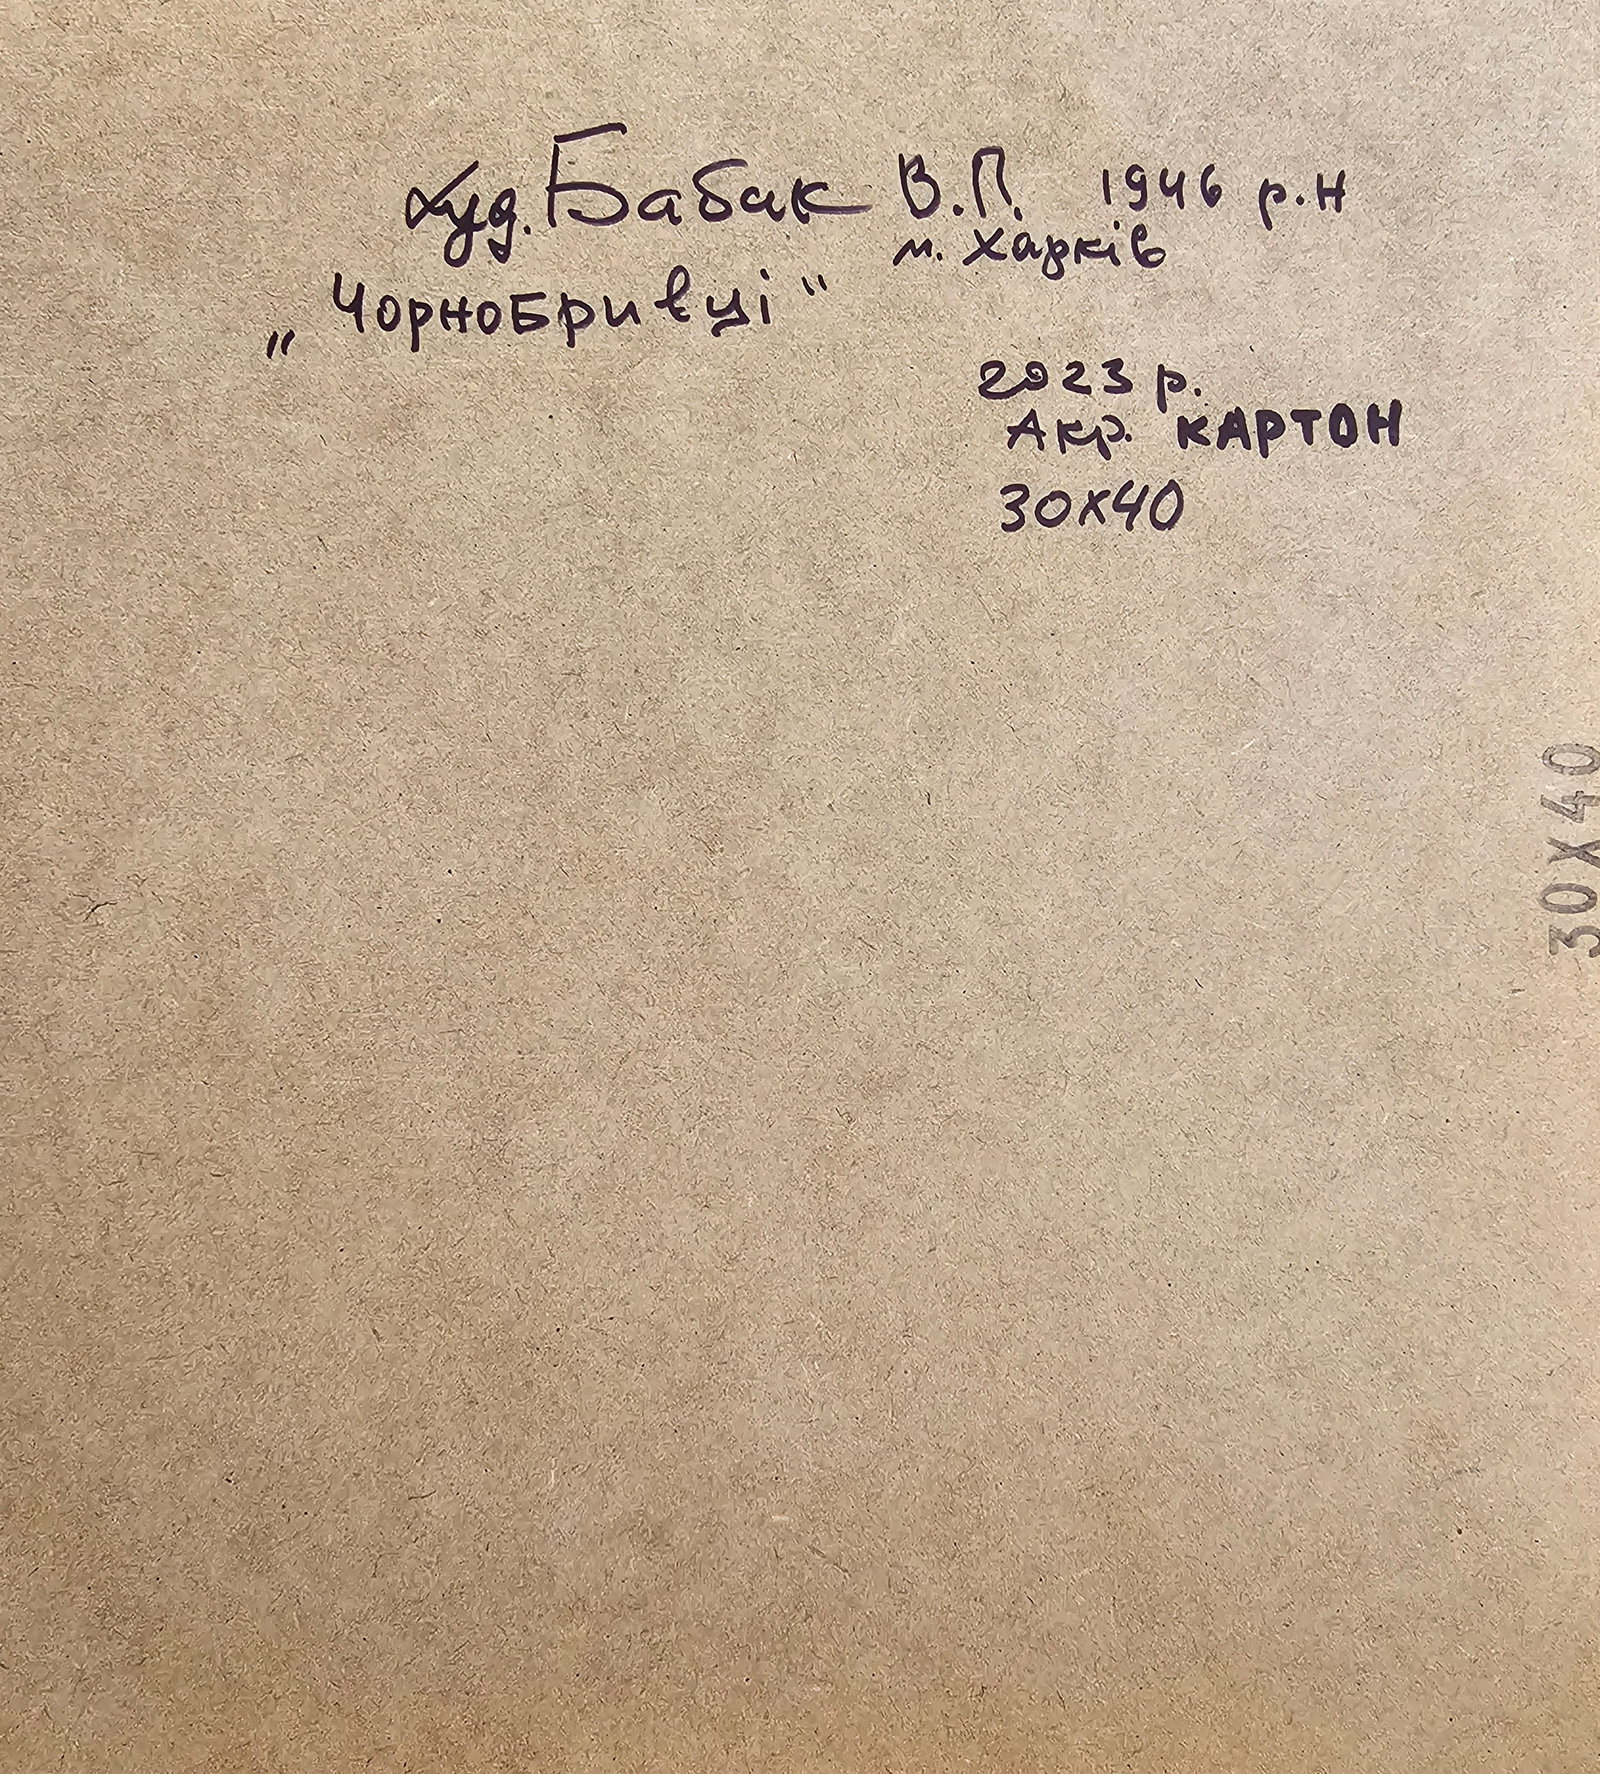 худ. Бабак В.П. 1946 р.н
м. Харків
„Чорнобривці“
2023 р.
Акр. КАРТОН
30х40
30X40